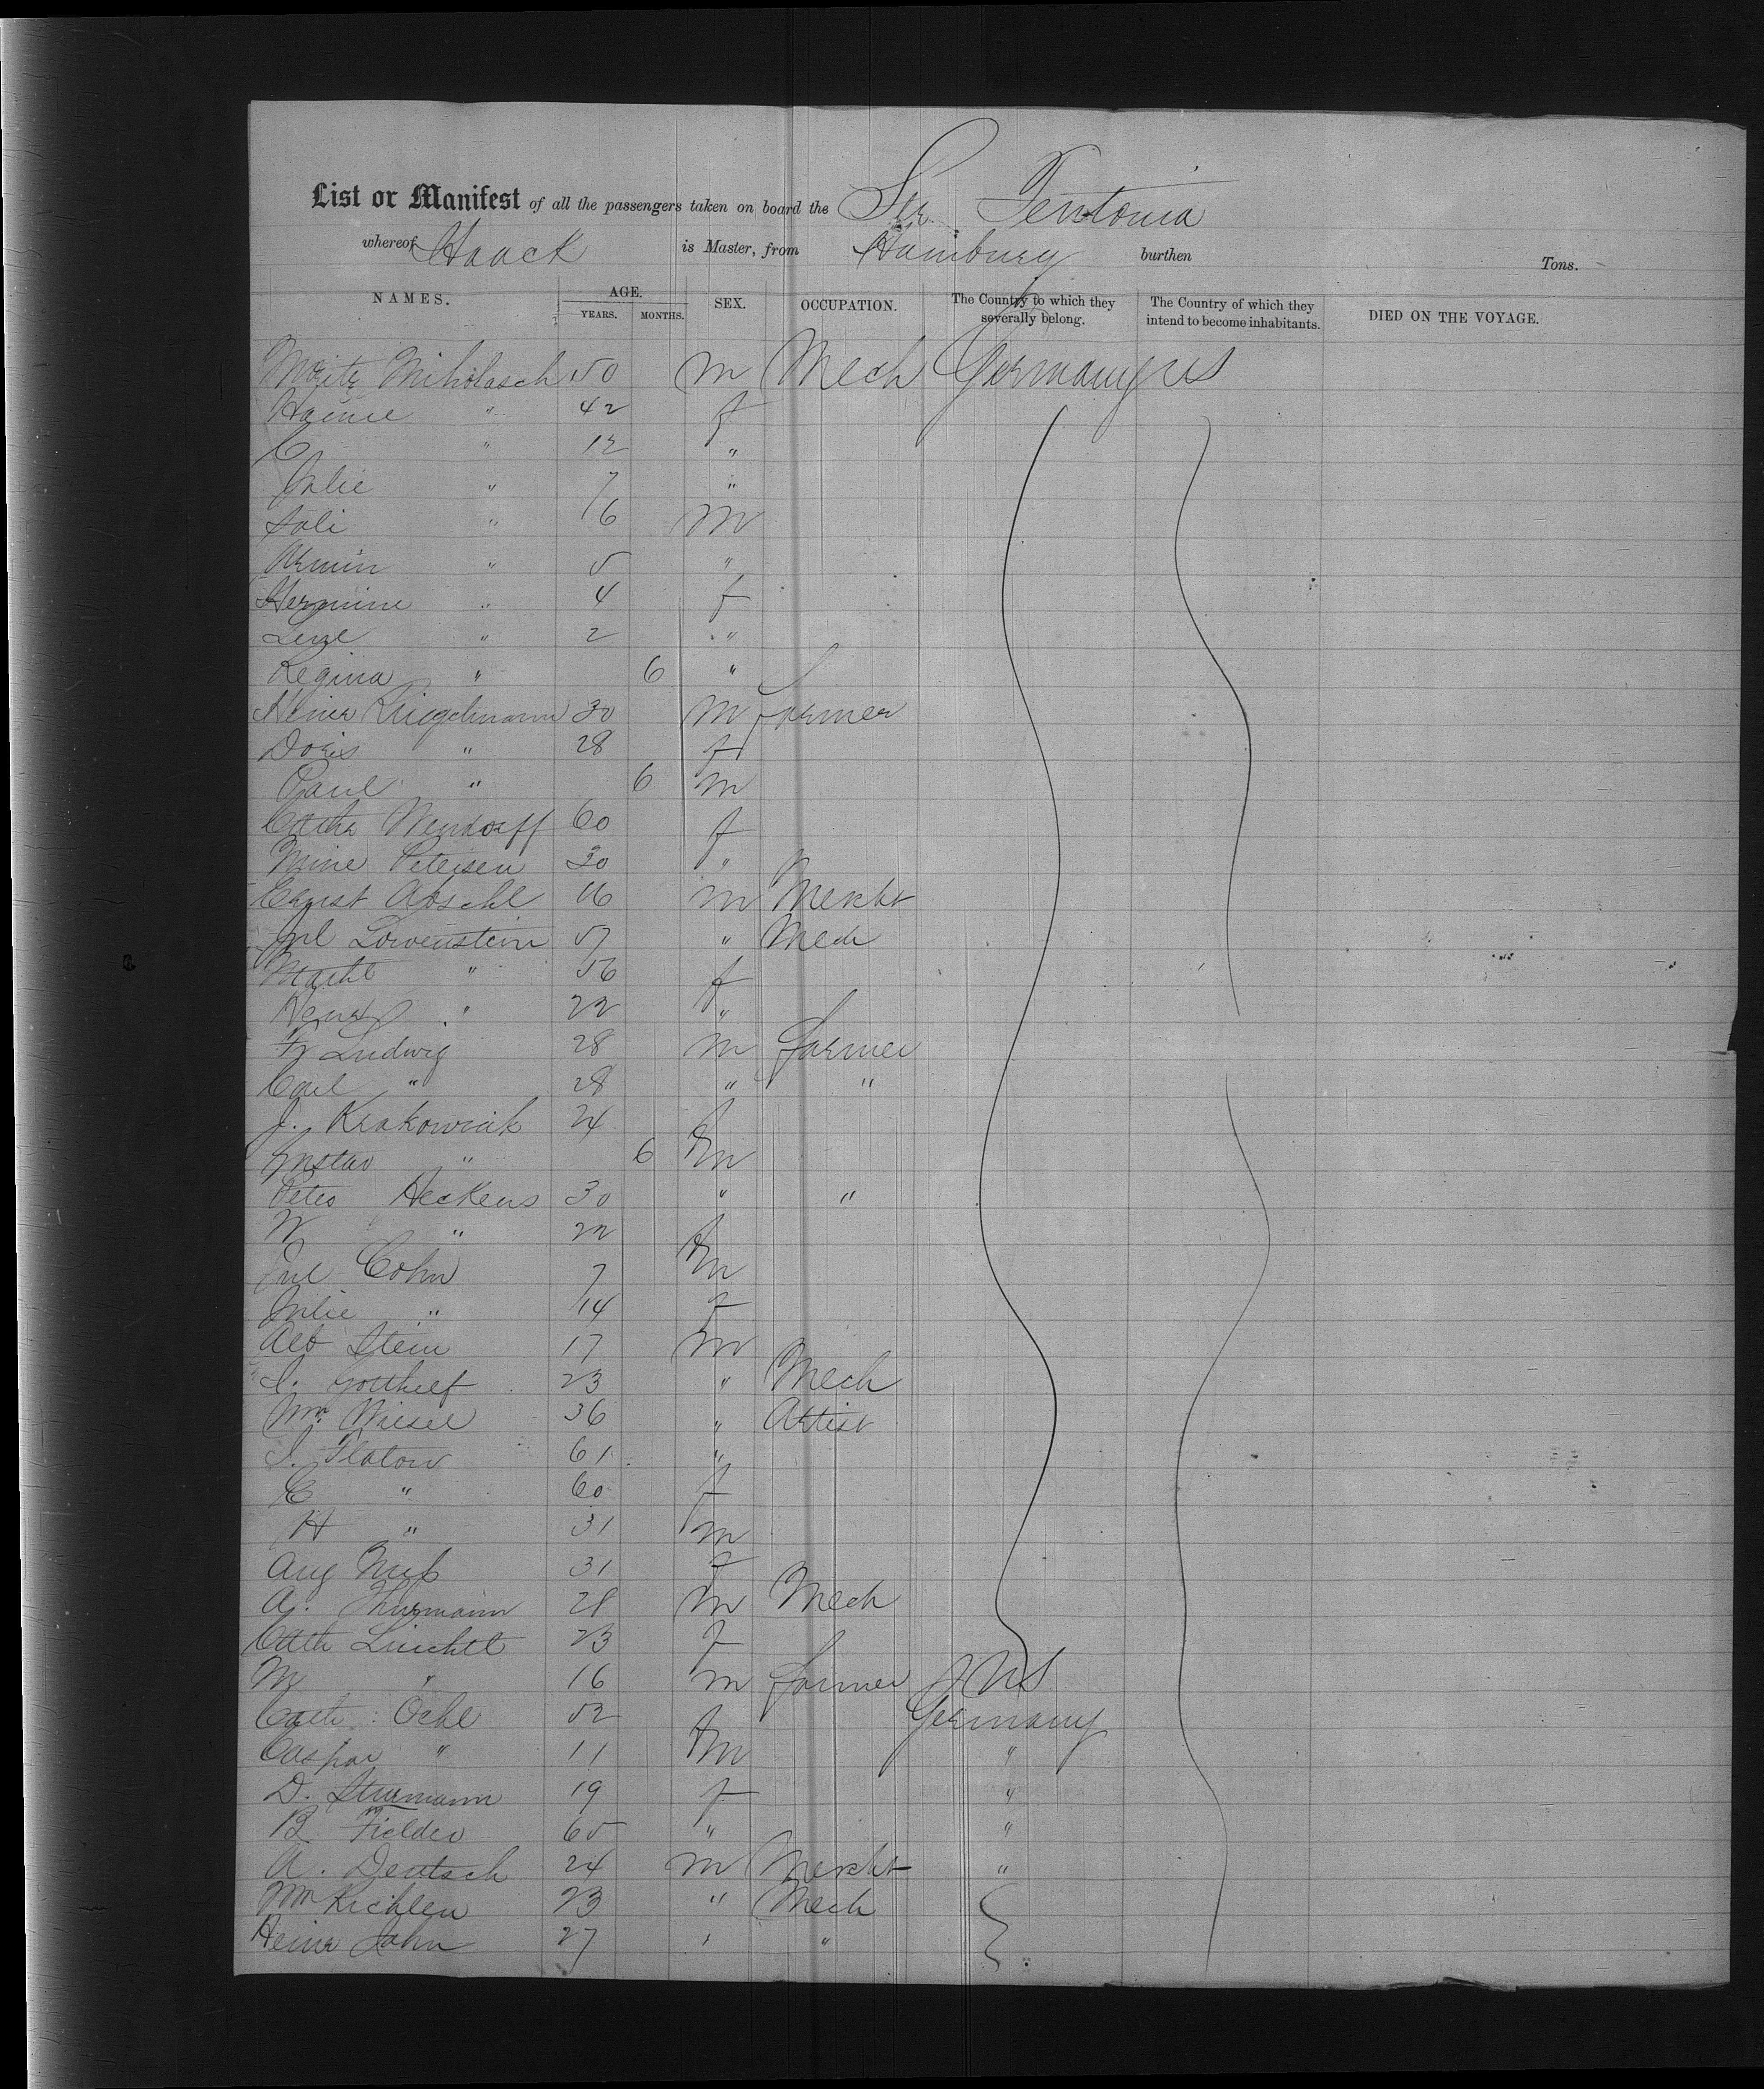 List or Manifest of all the passengers taken on board the Str. Teutonia
whereof Haack is Master, from Hamburg burthen Tons.
NAMES. AGE. YEARS. MONTHS. SEX. OCCUPATION. The Country to which they severally belong. The Country of which they intend to become inhabitants. DIED ON THE VOYAGE.
Moritz Miholasch 50 m Mech Germany US
" 42 f
C " 12 "
Julie " 7 "
Sali " 6 m
Armin " 5 "
Hermine " 4 f
" 2 "
Regina " 6 "
Heinr Kriegelmann 30 m farmer
Doris " 28 f
Paul " 6 m
Cathe Wendorff 60 f
Mine Petersen 30 "
Ernst 16 m Mercht
Jul Lowenstein 57 " Mech
" 56 f
" 22 "
Fr Ludwig 28 m farmer
Carl " 28 " "
J. Krakowiak 24 f
Gustav " 6 m
Peter Heckens 30 " "
W " 22 f
Jul Cohn 7 m
Julie " 14 f
Alb Stein 17 m
Gotthelf 23 " Mech
Wm Wiesel 36 " Artist
Flatow 61 "
C " 60 f
H " 31 m
Aug 31 f
A. Thurmann 28 m Mech
Cath 23 f
M " 16 m farmer US
Cath Oehl 52 f Germany
Caspar " 11 m "
D. 19 f "
B Fielder 65 " "
A. Deutsch 24 m Mercht "
Wm Kichlen 23 " Mech
Heinr Jahn 27 " "